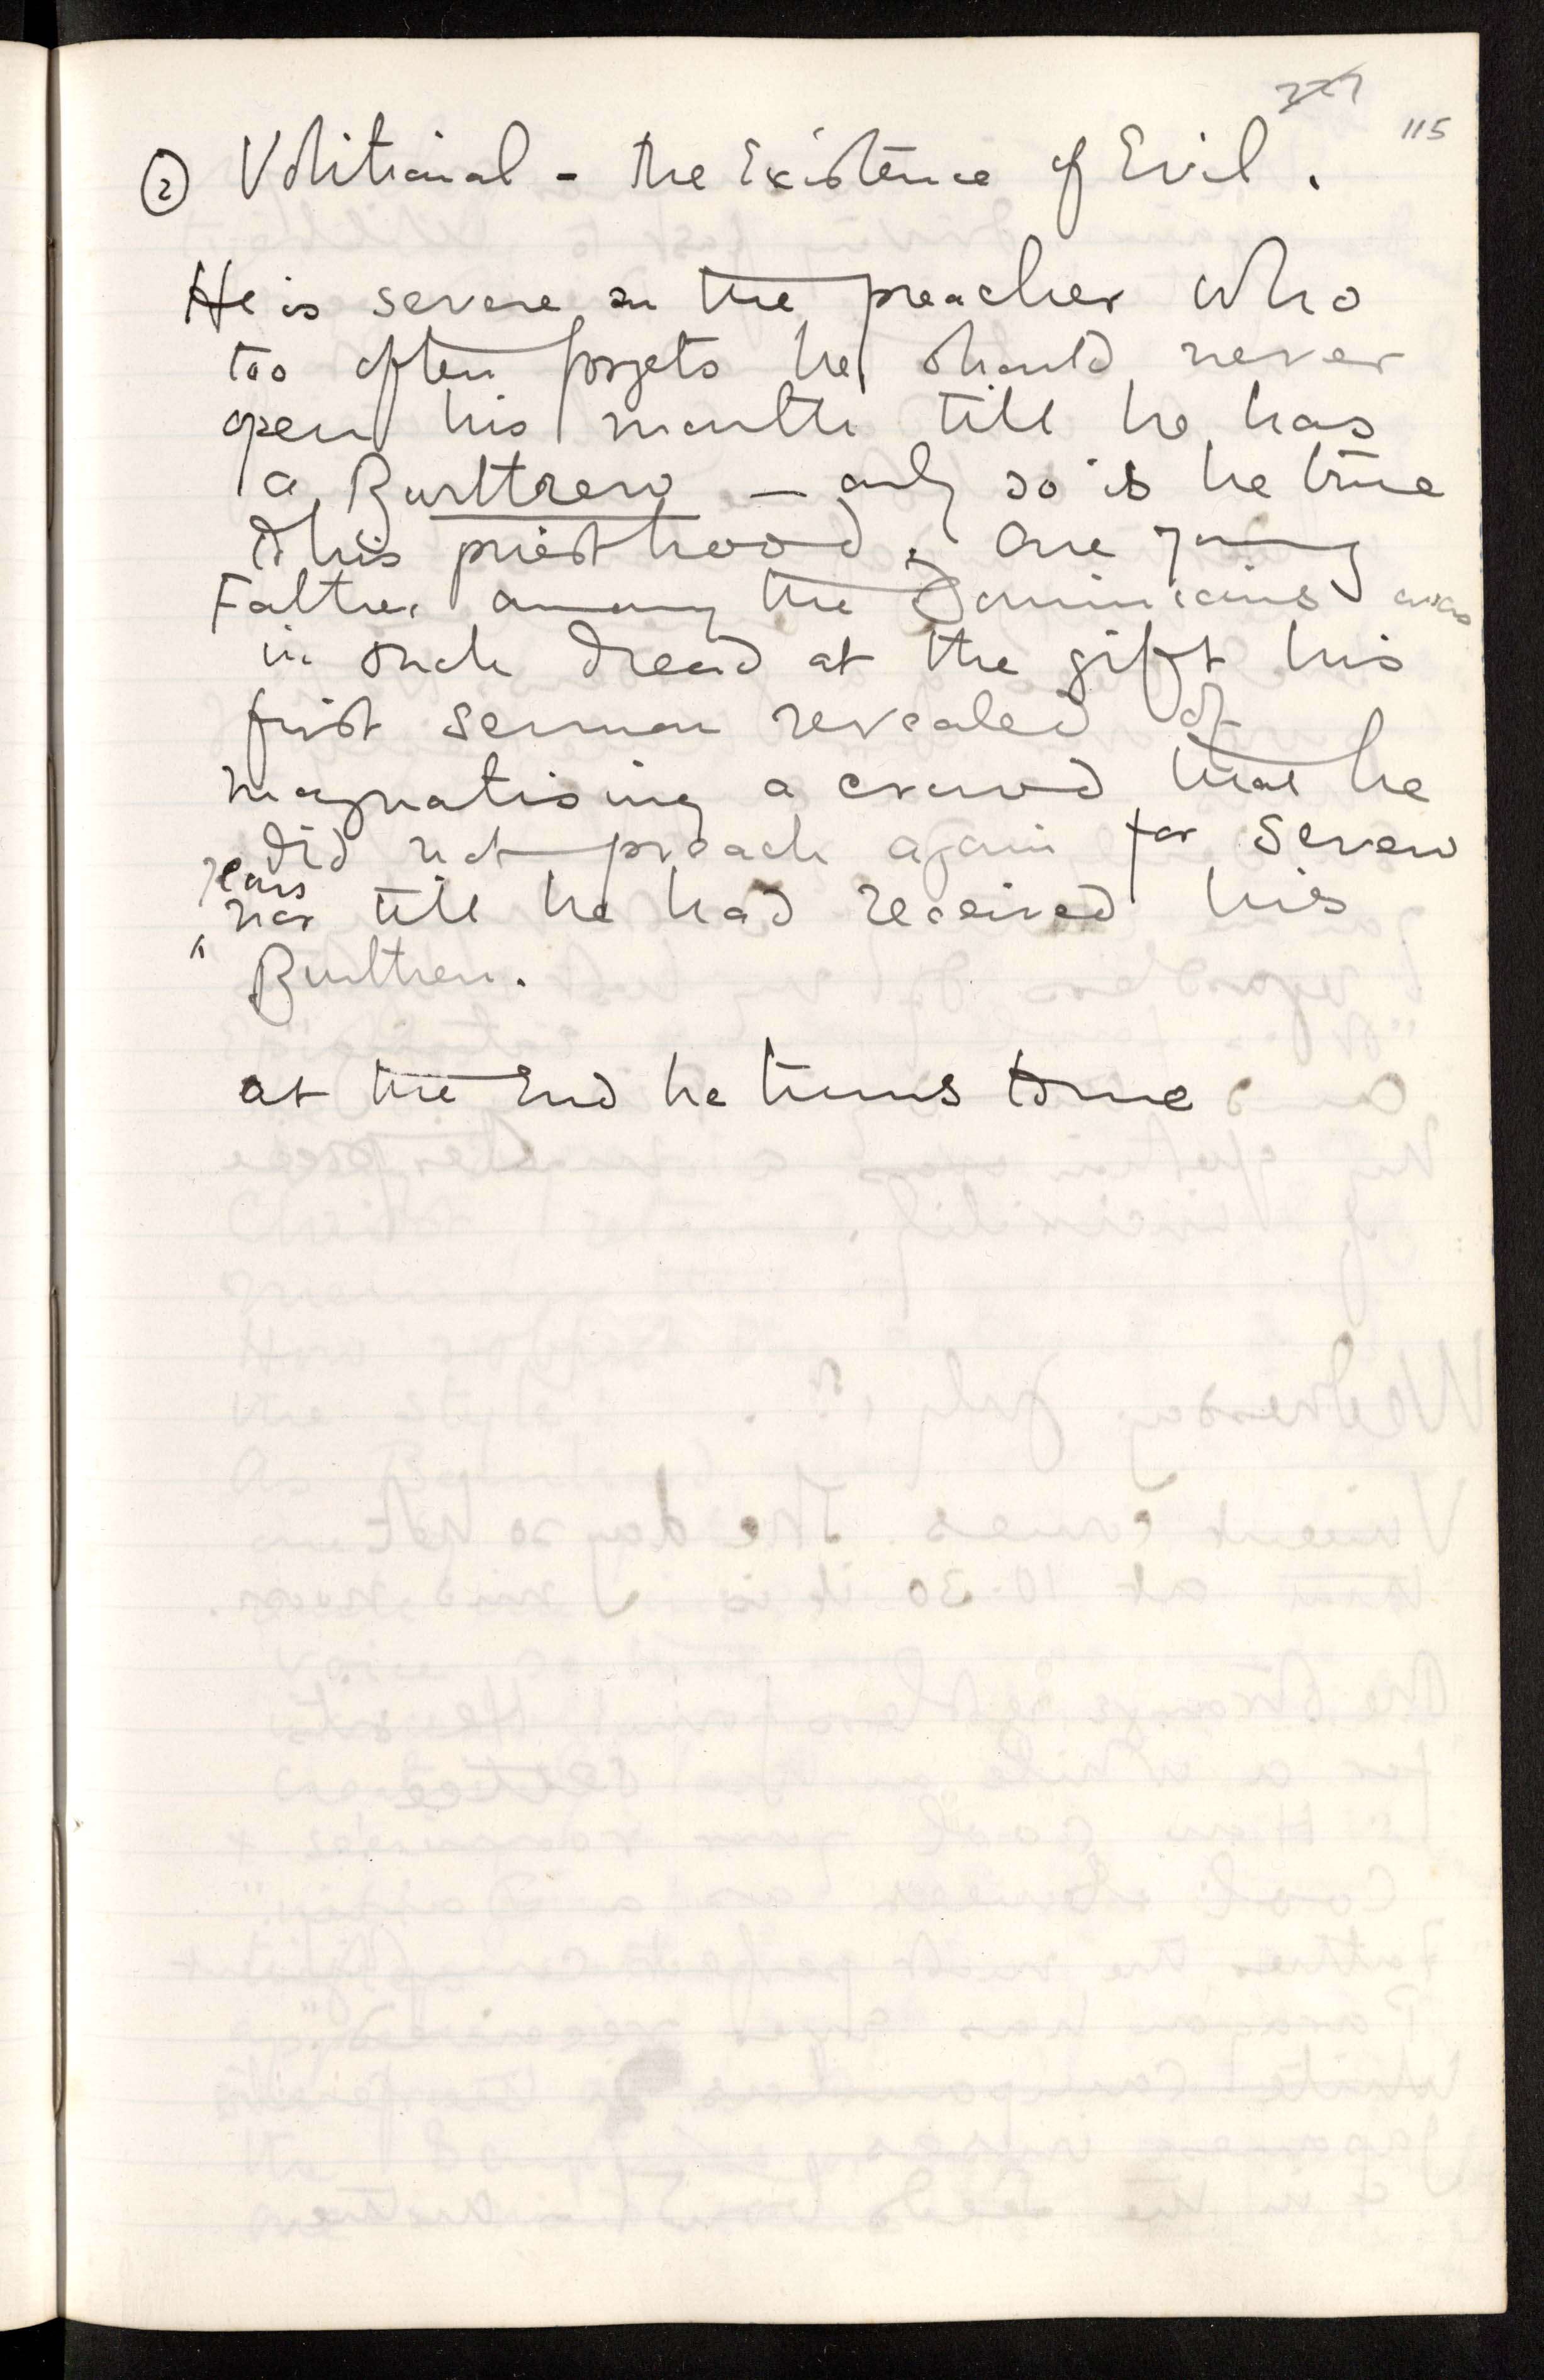 115
② Volitional - the Existence of Evil.
He is severe on the preacher who
too often forgets he should never
open his mouth till he has
a Burthen — only so is he true
to his priesthood. One young
Father among the Dominicans was
in such dread at the gift his
first sermon revealed of
magnatising a crowd that he
did not preach again for seven
years
nor till he had received his
"Burthen.
at the End he turns to me